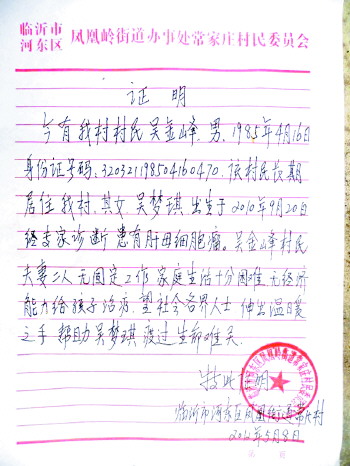 临沂市
河东区 凤凰岭街道办事处常家庄村民委员会
证明
今有我村村民吴金峰,男,1985年4月16日
身份证号码:320321198504160470.该村民长期
居住我村.其女吴梦琪出生于2010年9月20日
经专家诊断患有肝母细胞瘤。吴金峰村民
夫妻二人无固定工作家庭生活十分困难无经济
能力给孩子治病.望社会各界人士伸出温暖
之手帮助吴梦琪渡过生命难关.
特此证明
临沂市河东区凤凰街道常庄村
2012年5月8日